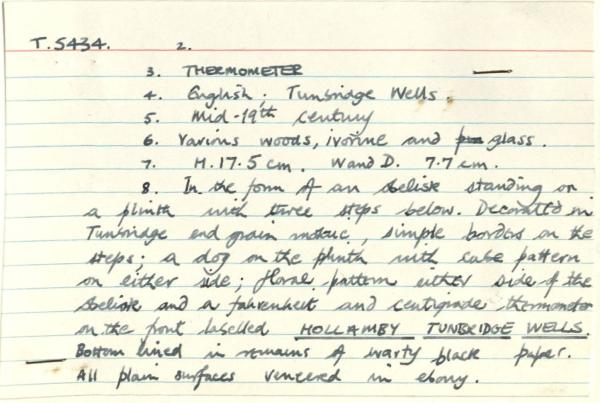 T.5434. 2.
3. THERMOMETER
4. English; Tunbridge Wells.
5. Mid-19th century
6. Various woods, ivorine and glass.
7. H. 17.5 cm. W and D. 7.7 cm.
8. In the form of an obelisk standing on
a plinth with three steps below. Decorated in
Tunbridge end grain mosaic, simple borders on the
steps; a dog on the plinth with cube pattern
on either side; floral pattern either side of the
obelisk and a fahrenheit and centigrade thermometer
on the front labelled HOLLAMBY TUNBRIDGE WELLS.
Bottom lined in remains of warty black paper.
All plain surfaces veneered in ebony.